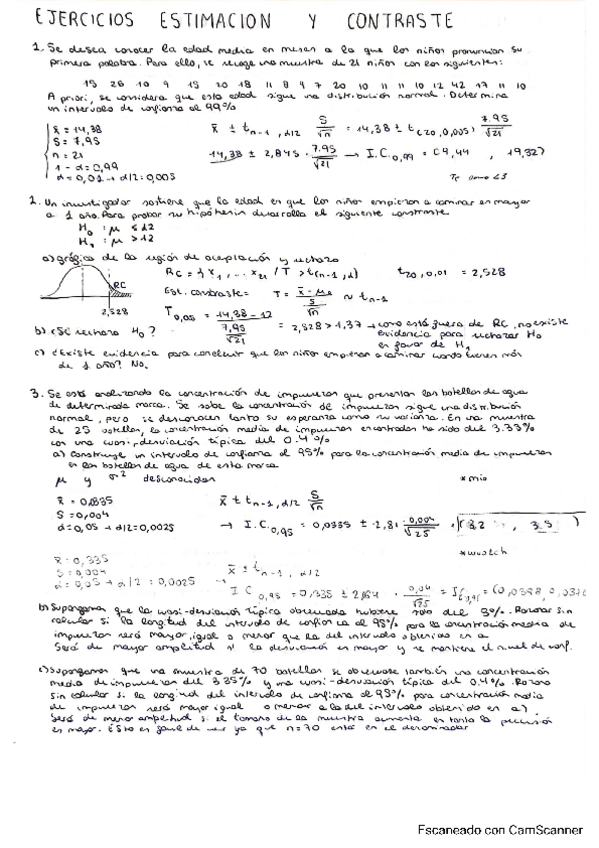 EJERCICIOS ESTIMACION Y CONTRASTE
1. Se desea conocer la edad media en meses a la que los niños pronuncian su
primera palabra. Para ello, se recoge una muestra de 21 niños con los siguientes:
15 26 10 9 15 20 18 11 8 9 7 20 10 11 11 10 12 42 17 11 10
A priori, se considera que esta edad sigue una distribución normal. Determina
un intervalo de confianza al 99%
x̄ = 14,38
S = 7,95
n = 21
1 - α = 0,99
α = 0,01 → α/2 = 0,005
x̄ ± t n-1, α/2 S/√n = 14,38 ± t(20, 0,005) 7.95/√21
14,38 ± 2,845 · 7.95/√21 → I.C 0,99 = (9,44 , 19,32)
2. Un investigador sostiene que la edad en que los niños empiezan a caminar es mayor
a 1 año. Para probar su hipótesis desarrolla el siguiente constraste
H₀ : μ ≤ 12
H₁ : μ > 12
a) gráfica de la región de aceptación y rechazo
RC = { x₁, ... x₂₁ / T > t(n-1, α) } t 20, 0,01 = 2,528
RC
2,528
Est. contraste = T = x̄ - μ₀ / S/√n ~ t n-1
T 0,05 = 14,38 - 12 / 7,95/√21 = 2,528 > 1.37 → como está fuera de RC, no existe
evidencia para rechazar H₀
en favor de H₁
b) ¿Se rechaza H₀?
c) ¿Existe evidencia para concluir que los niños empiezan a caminar cuando tienen más
de 1 año? No.
3. Se está analizando la concentración de impurezas que presentan las botellas de agua
de determinada marca. Se sabe la concentración de impurezas sigue una distribución
normal, pero se desconocen tanto su esperanza como su varianza. En una muestra
de 25 botellas, la concentración media de impurezas encontradas ha sido del 3.35%
con una cuasi-desviación típica del 0.4%
a) Construye un intervalo de confianza al 95% para la concentración media de impurezas
en las botellas de agua de esta marca
μ y σ² desconocidas
*mio
x̄ = 0,0335
S = 0,004
α = 0,05 → α/2 = 0,0025
x̄ ± t n-1, α/2 S/√n
→ I.C. 0,95 = 0,0335 ± 2,81 · 0,004/√25
*wuolch
x̄ = 0,335
S = 0,004
α = 0,05 → α/2 = 0,0025
x̄ ± t n-1, α/2
b) Supongamos que la cuasi-desviación típica observada hubiese sido del 3%. Razonar sin
calcular si la longitud del intervalo de confianza al 95% para la concentración media de
impurezas será mayor, igual o menor que la del intervalo obtenido en a
Será de mayor amplitud si la desviación es mayor y se mantiene el nivel de conf.
c) Supongamos que una muestra de 70 botellas se observase también una concentración
media de impurezas del 3.35% y una cuasi-desviación típica del 0.4%. Razona
sin calcular si la longitud del intervalo de confianza al 95% para concentración media
de impurezas será mayor igual o menor a la del intervalo obtenido en a)
Será de menor amplitud si el tamaño de la muestra aumenta en tanto la precisión
es mayor. Esto es fácil de ver ya que n=70 está en el denominador
Escaneado con CamScanner